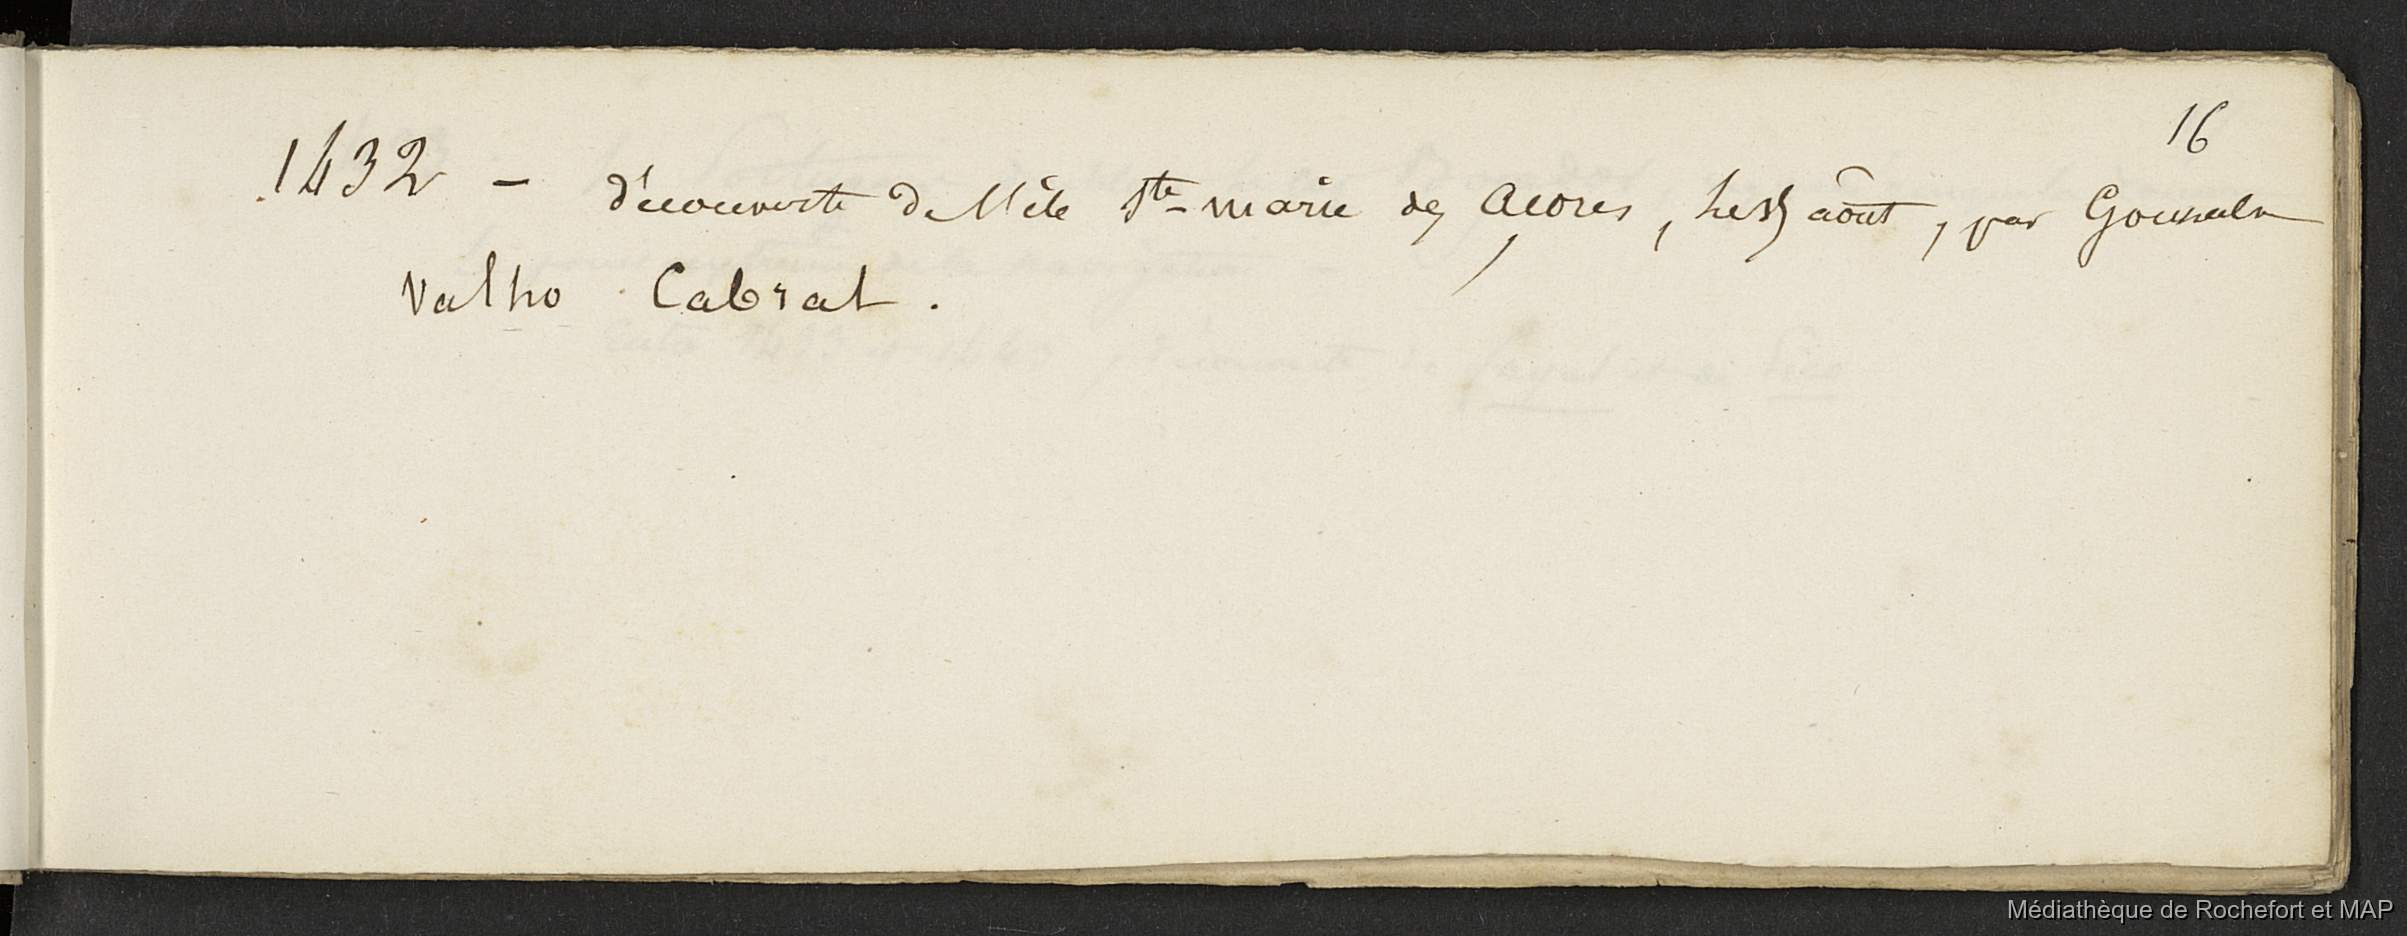 16
1432 - découverte de l'île Ste-marie des Açores, le 15 août, par Gousalve
Valho Cabral.
Médiathèque de Rochefort et MAP